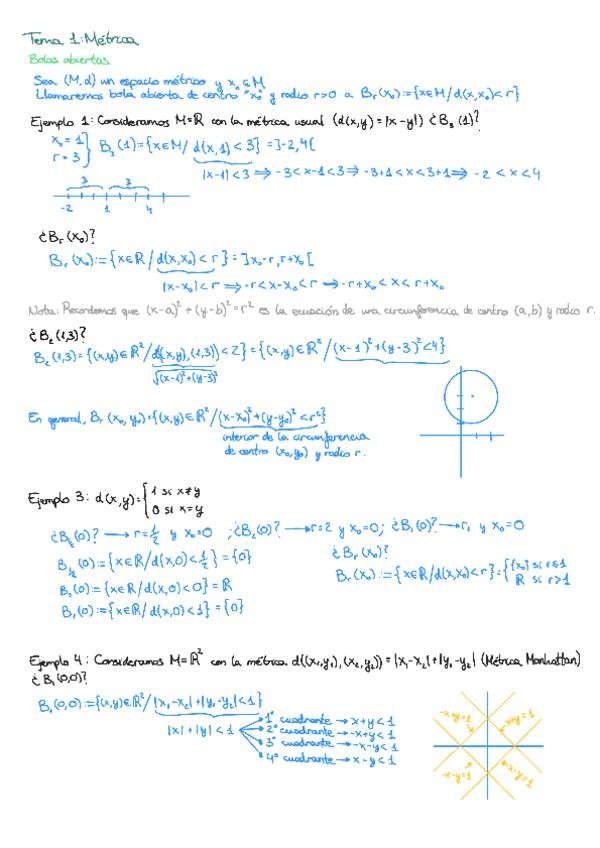 Tema 1: Métrica
Bolas abiertas
Sea (M,d) un espacio métrico y x₀ ∈ M
Llamaremos bola abierta de centro "x₀" y radio r>0 a Bᵣ(x₀):={x∈M/d(x,x₀)<r}
Ejemplo 1: Consideramos M=ℝ con la métrica usual (d(x,y)=|x-y|) ¿B₃(1)?
x₀=1
r=3
B₃(1):={x∈M/ d(x,1)<3} =]-2,4[
|x-1|<3 ⟹ -3<x-1<3 ⟹ -3+1<x<3+1 ⟹ -2<x<4
3 3
-2 1 4
¿Bᵣ(x₀)?
Bᵣ(x₀):={x∈ℝ/d(x,x₀)<r}=]x₀-r,r+x₀[
|x-x₀|<r ⟹ -r<x-x₀<r ⟹ -r+x₀<x<r+x₀
Nota: Recordemos que (x-a)²+(y-b)²=r² es la ecuación de una circunferencia de centro (a,b) y radio r.
¿B₂(1,3)?
B₂(1,3)={(x,y)∈ℝ²/d((x,y),(1,3))<2}={(x,y)∈ℝ²/(x-1)²+(y-3)²<4}
√(x-1)²+(y-3)²
En general, Bᵣ(x₀,y₀)={(x,y)∈ℝ²/(x-x₀)²+(y-y₀)²<r²}
interior de la circunferencia
de centro (x₀,y₀) y radio r.
Ejemplo 3: d(x,y)={1 si x≠y
0 si x=y
¿B½(0)? → r=½ y x₀=0 ; ¿B₂(0)? → r=2 y x₀=0; ¿B₁(0)? → r, y x₀=0
B½(0):={x∈ℝ/d(x,0)<½}={0}
B₂(0):={x∈ℝ/d(x,0)<0}=ℝ
B₁(0):={x∈ℝ/d(x,0)<1}={0}
¿Bᵣ(x₀)?
Bᵣ(x₀):={x∈ℝ/d(x,x₀)<r}={{x₀} si r≤1
ℝ si r>1
Ejemplo 4: Consideramos M=ℝ² con la métrica d((x₁,y₁),(x₂,y₂))=|x₁-x₂|+|y₁-y₂| (Métrica Manhattan)
¿B₁(0,0)?
B₁(0,0):={(x,y)∈ℝ²/|x₁-x₂|+|y₁-y₂|<1}
|x|+|y|<1
1º cuadrante → x+y<1
2º cuadrante → -x+y<1
3º cuadrante → -x-y<1
4º cuadrante → x-y<1